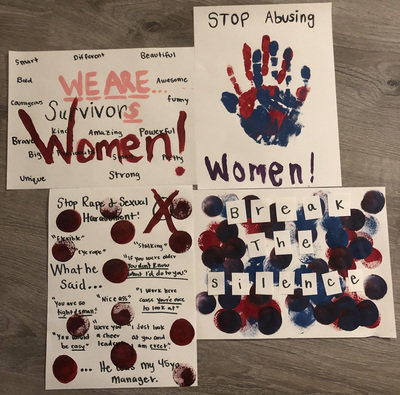 Smart Different Beautiful
Bad Awesome
WE ARE...
Courageous funny
Survivors
Brave Kind Amazing Powerful
Women!
Big Pretty
Unique Strong
STOP Abusing
Women!
Stop Rape & Sexual
Harassment!
X
"Eye rape" "Stalking"
What he
Said...
"If you were older
you don't know
what I'd do to you"
"You are so
tight & small"
"Nice ass"
"I work here
cause you're nice
to look at"
"You would
be easy"
"Were you
a cheer
leader"
"I just look
at you and
am erect"
... He was my 45yo
manager.
Break
The
Silence